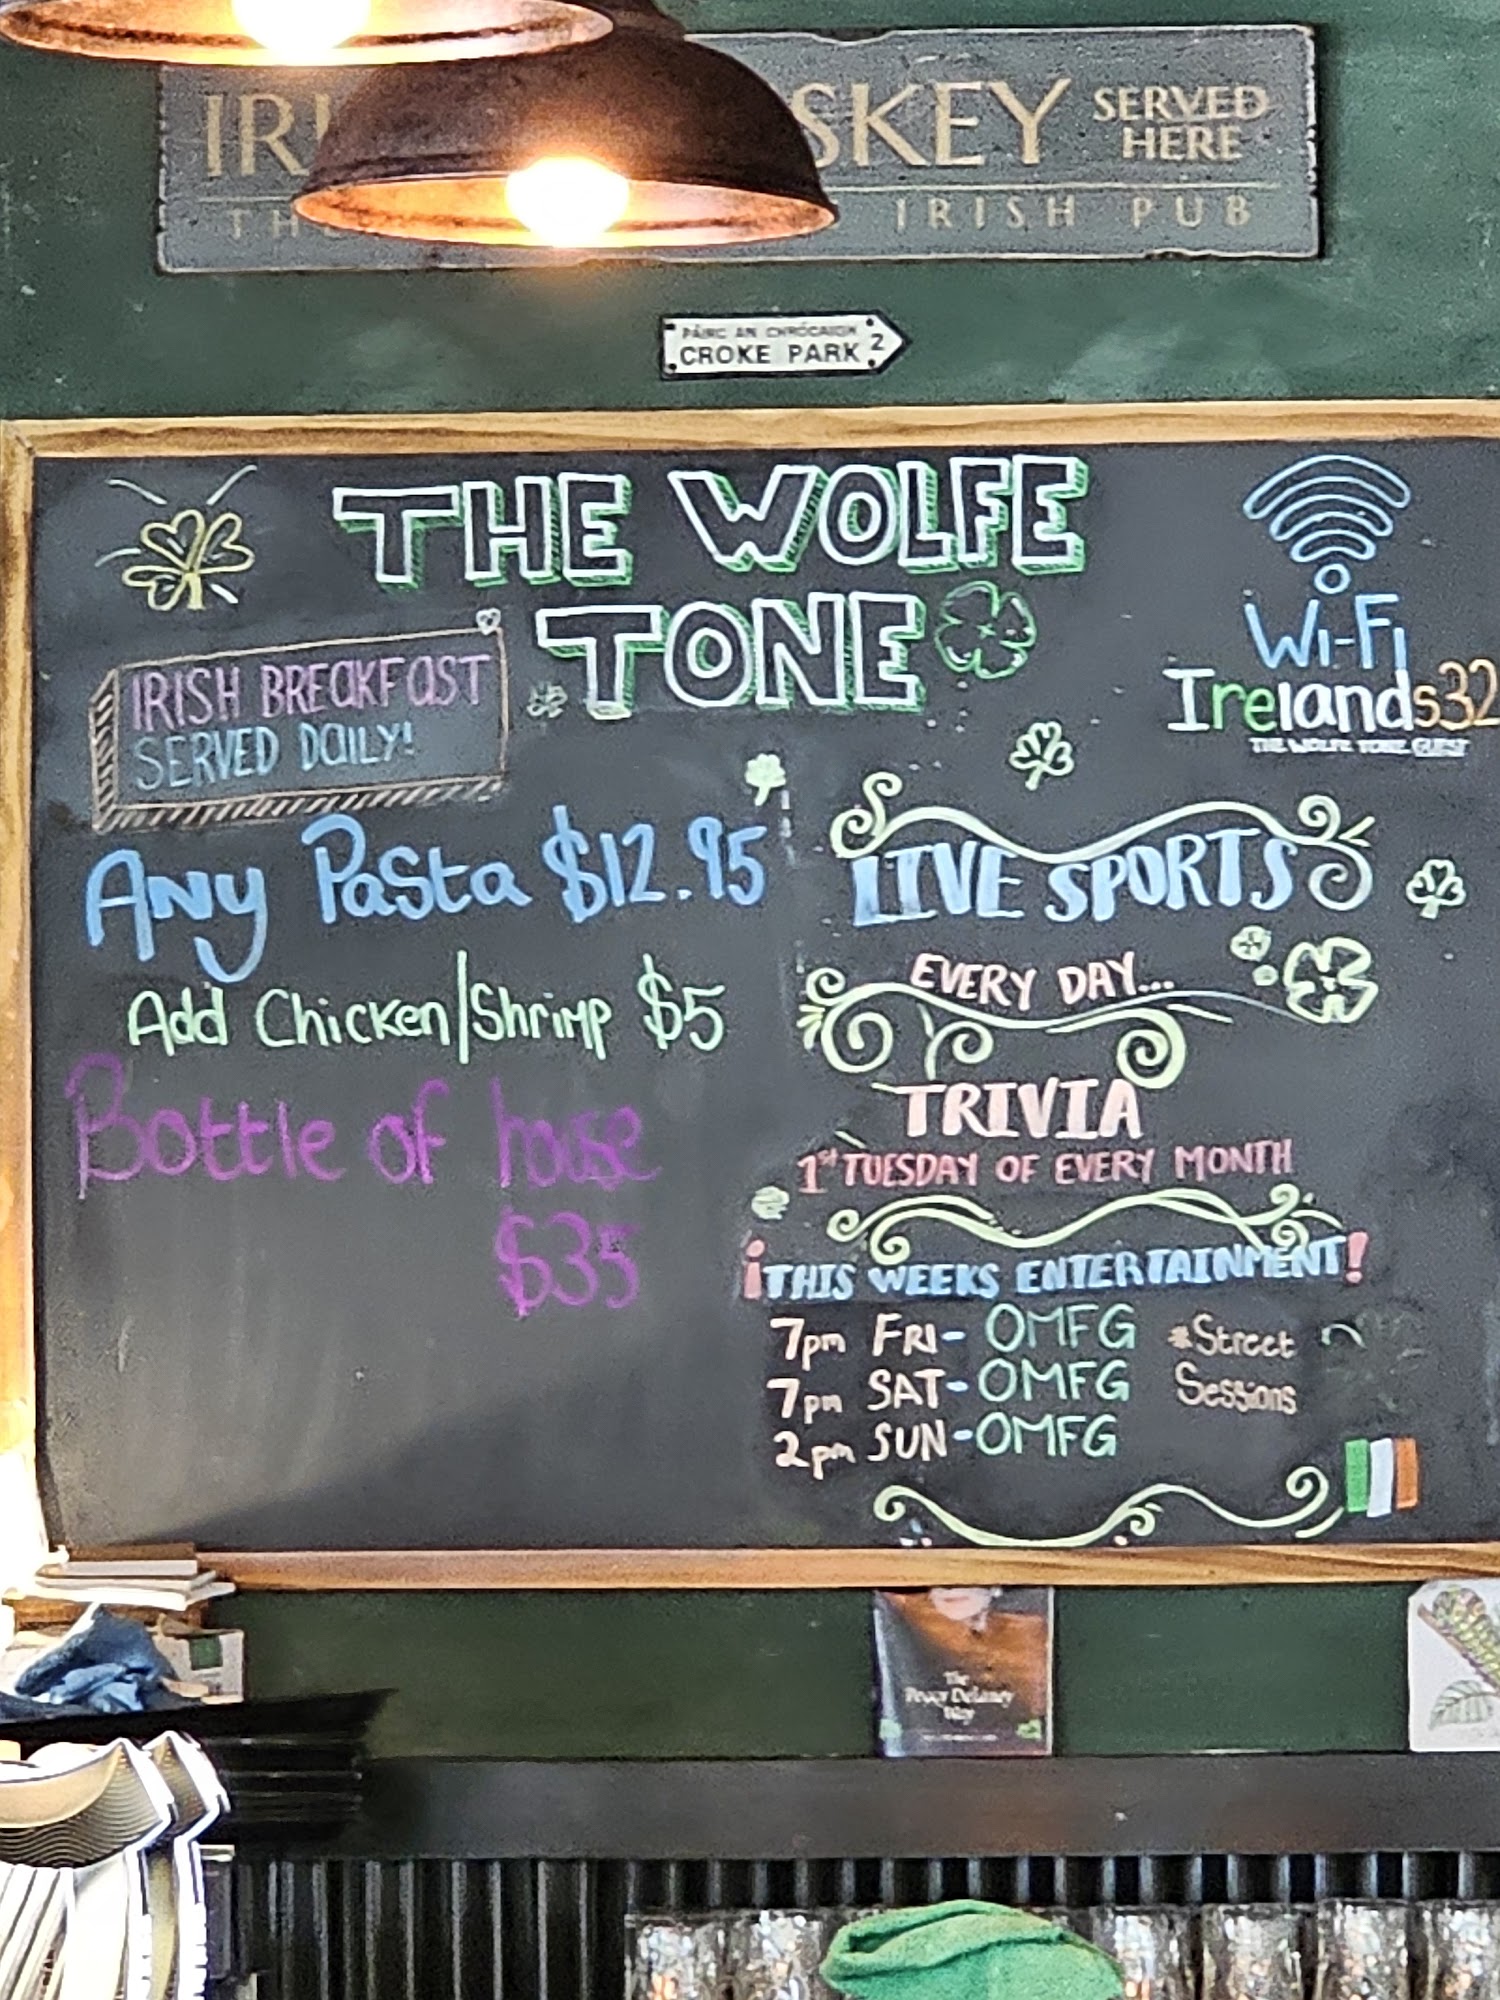 IRI SKEY SERVED HERE
TH IRISH PUB
PÁIRC AN CHRÓCAIGH
CROKE PARK 2
THE WOLFE
TONE
IRISH BREAKFAST
SERVED DAILY!
WI-FI
Irelands32
THE WOLFE TONE GUEST
Any Pasta $12.95
Add Chicken/Shrimp $5
Bottle of house
$35
LIVE SPORTS
EVERY DAY...
TRIVIA
1ST TUESDAY OF EVERY MONTH
¡THIS WEEKS ENTERTAINMENT!
7pm FRI- OMFG *Street
7pm SAT- OMFG Sessions
2pm SUN-OMFG
The
Peggy Delaney
Way